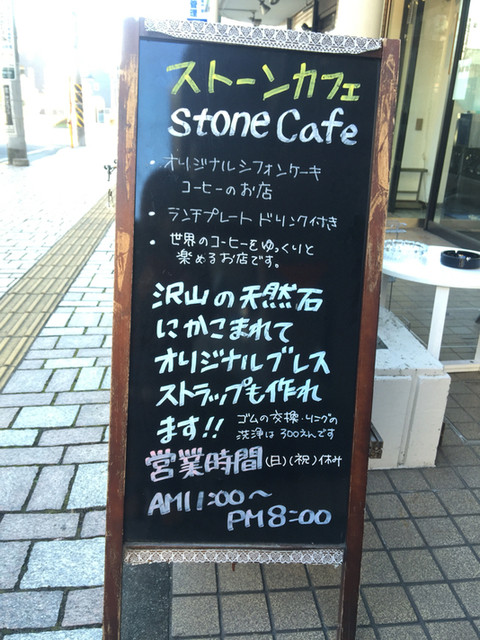 ストーンカフェ
Stone Cafe
・オリジナルシフォンケーキ
コーヒーのお店
・ランチプレート ドリンク付き
・世界のコーヒーをゆっくりと
楽めるお店です。
沢山の天然石
にかこまれて
オリジナルブレス
ストラップも作れ
ます!!
ゴムの交換・リングの
洗浄は300えんです
営業時間(日)(祝)休み
AM11:00〜
PM8:00